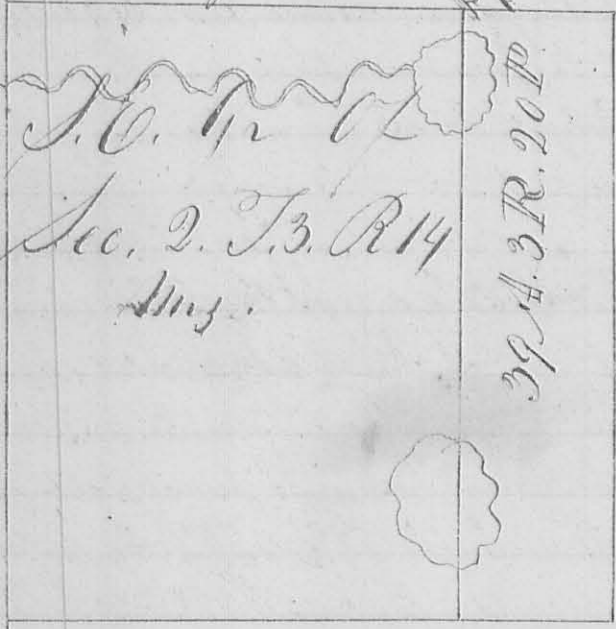 S.E. qr of
Sec. 2. T.3. R 14
39 A. 3 R. 20 P.